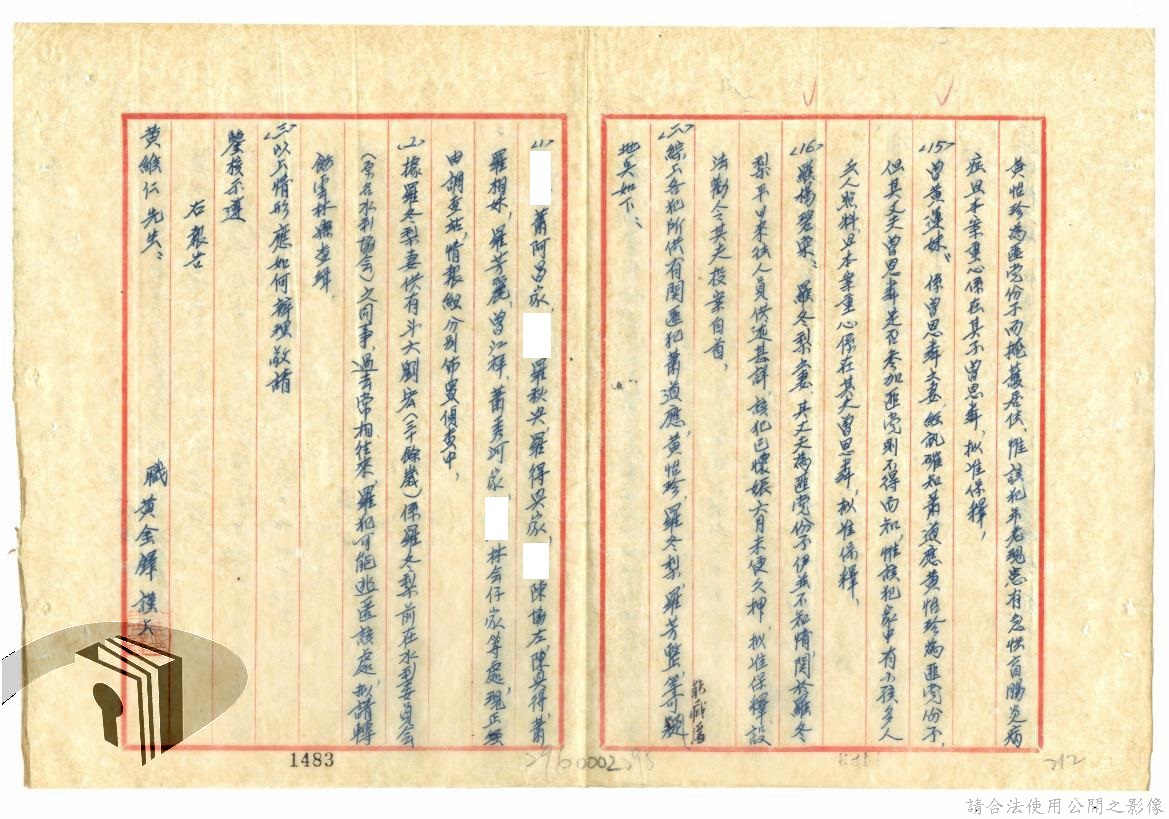 黃怡珍為匪黨份子而掩護居住,惟該犯年老現患有急性盲腸炎病
症且本案重心係在其子曾思粦,拟准保釋,
<15>曾黃蓮妹:係曾思粦之妻經訊確知蕭道應黃怡珍為匪黨份子,
但其丈夫曾思粦是否參加匪黨則不得而知,惟該犯家中有小孩多人
乏人照料,且本案重心係在其夫曾思粦,拟准保釋,
<16>羅楊碧棠:羅冬梨之妻,其丈夫為匪黨份子伊並不知情,関於羅冬
梨平日來往人員供述甚詳,該犯已懷娠六月未便久押,拟准保釋設
法勸令其夫投案自首,
<二>綜上各犯所供有関匪犯蕭道應,黃怡珍,羅冬梨,羅芳整,等可疑
能藏匿
地点如下:
<1> 蕭阿昌家, 羅秋興,羅得興家, 陳協左,陳興得,蕭
羅相妹,羅芳麗,曾江祥,蕭秀河家, 林会仔家等處,現正經
由調查站,情報組分別佈置偵查中,
<2>據羅冬梨妻供有斗六劉宏(三十餘歲)係羅冬梨前在水利委員会
(原名水利協会)之同事,過去常相往來,羅犯可能逃匿該處,拟請轉
飭雲林縣查緝,
<三>以上情形應如何辦理敬請
鑒核示遵
右報告
黃維仁先生:
職黃金鐸 謹上
1483
296
0002295
212
請合法使用公開之影像